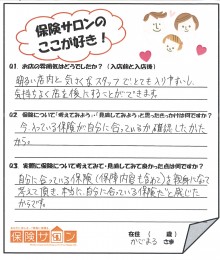 保険サロンの
ここが好き!
Q1 お店の雰囲気はどうでしたか? (入店前と入店後)
明るい店内と気さくなスタッフでとても入りやすいし
気持ちよく店を後にすることができます。
Q2 保険について「考えてみよう」「見直してみよう」と思ったきっかけは何ですか?
今、入っている保険が自分に合っているか確認したかった
から。
Q3 実際に保険について考えてみて・見直してみて良かった点は何ですか?
自分に合っている保険(保障内容も含めて)を親身になって
考えて頂き、本当に自分に合っている保険だと感じた
からです。
保険サロン
在住 ( 歳)
さま